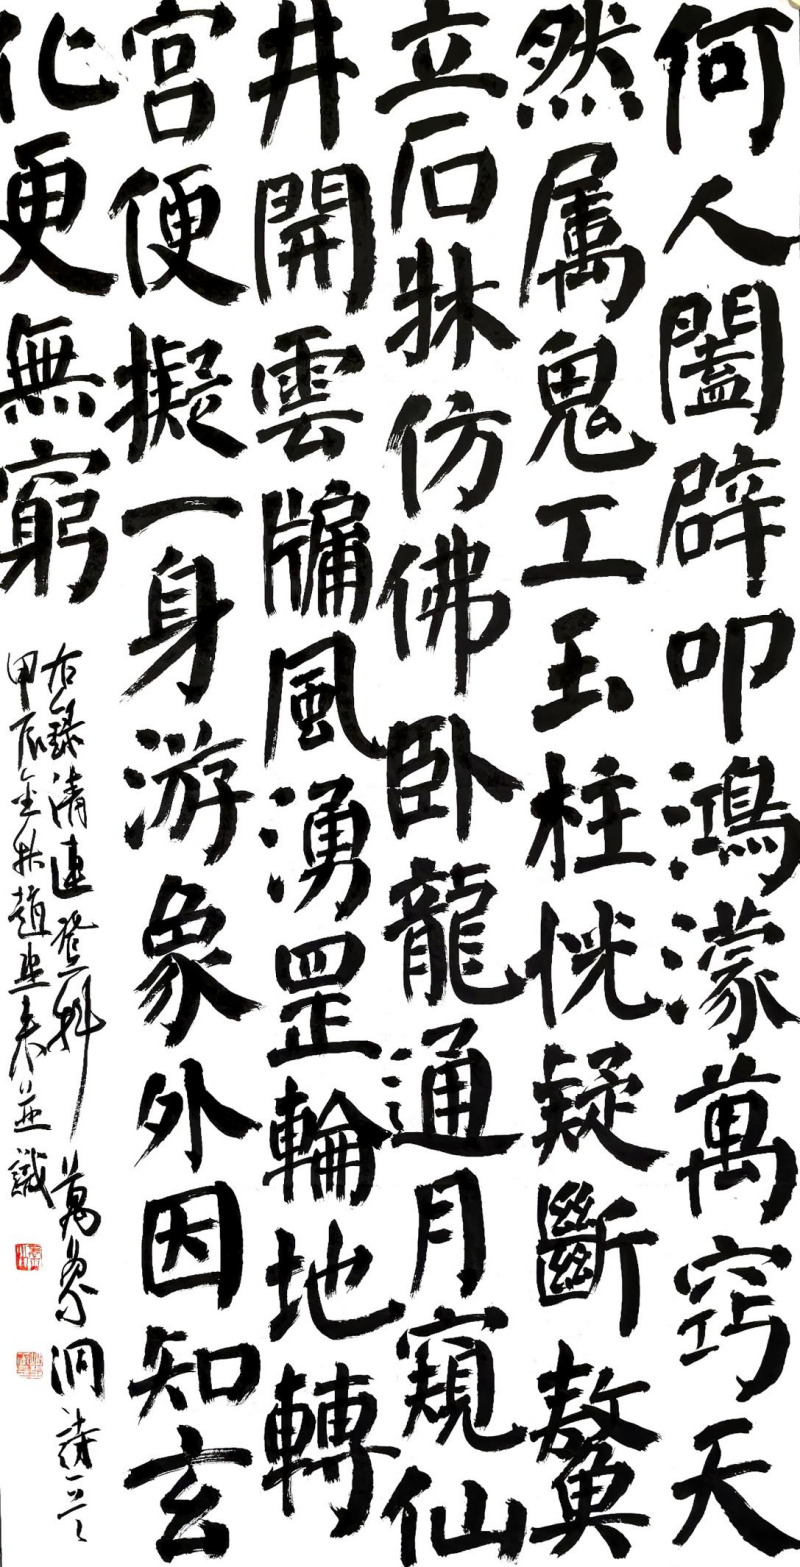 何人闔辟叩鴻濛萬窍天
然属鬼工玉柱恍疑斷鰲
立石牀仿佛卧龍通月窺仙
井開雲牖風湧罡輪地轉
宫便擬一身游象外因知玄
化更無窮
右錄清連登科萬象洞詩一首
甲辰金秋趙並識